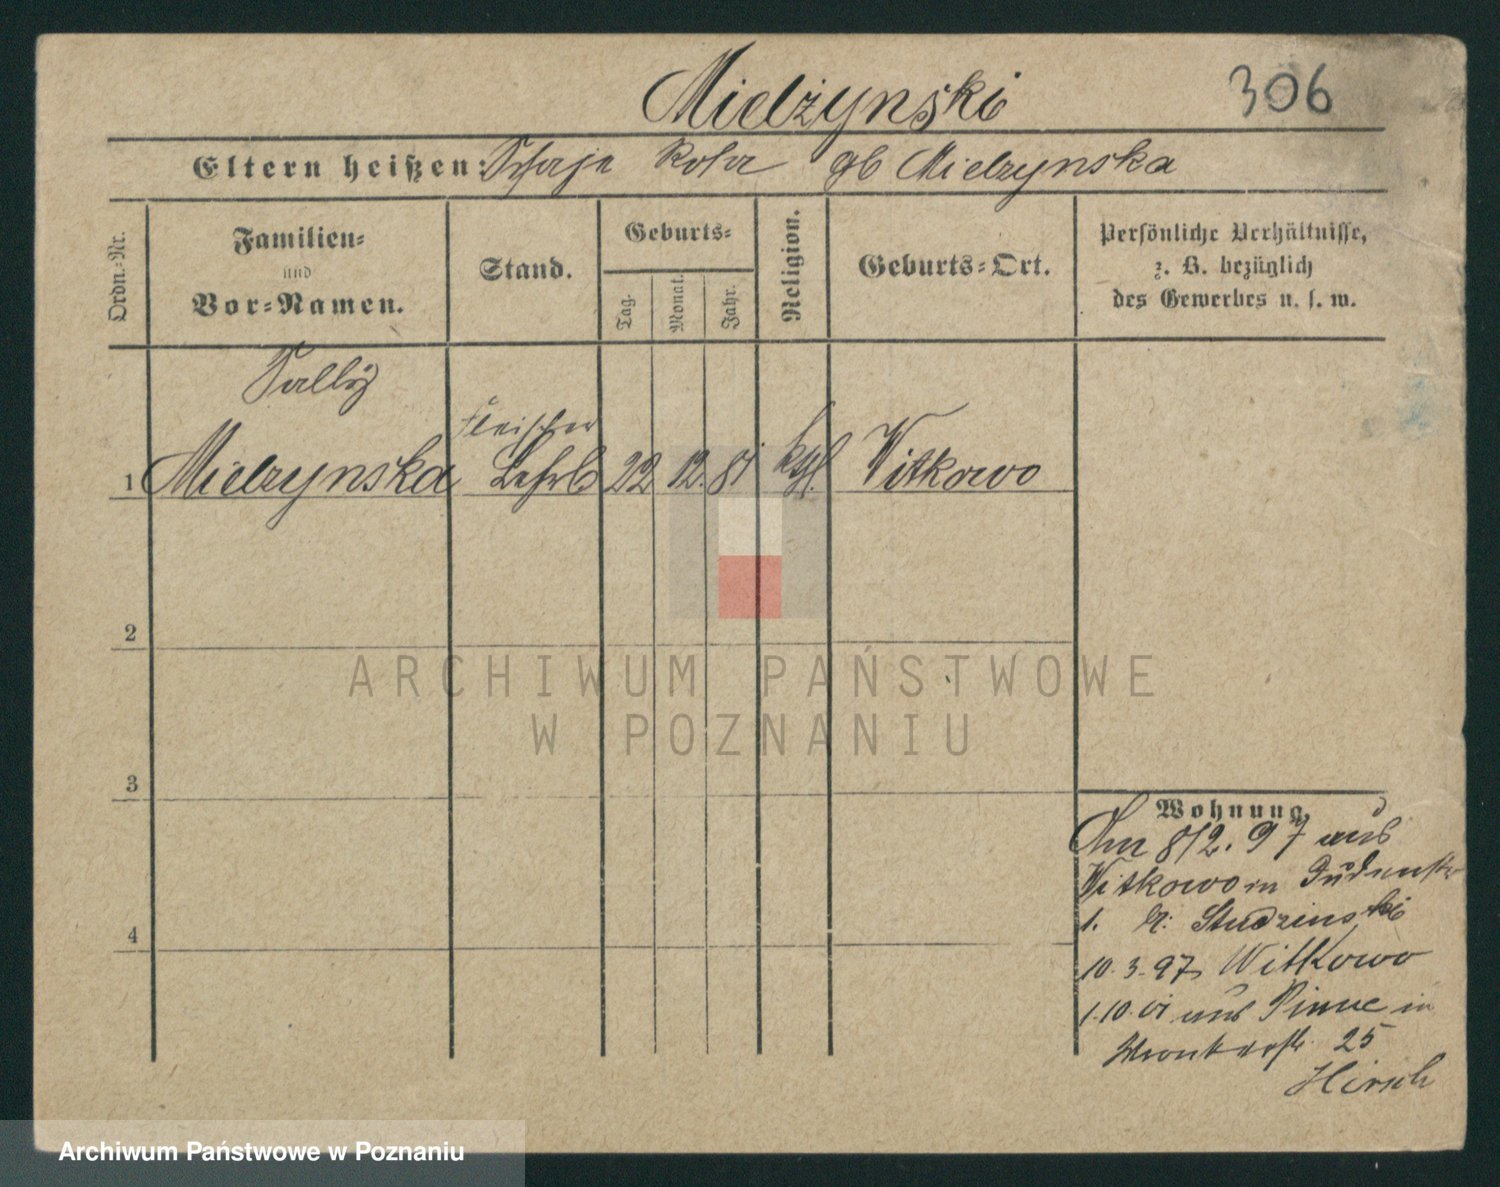 Mielżynski 306
Eltern heißen: Schaje Rosa gb Mielzynska
Ordn.-Nr.
Familien- und Vor-Namen.
Stand.
Geburts-
Tag.
Monat.
Jahr.
Religion.
Geburts-Ort.
Persönliche Verhältnisse,
z. B. bezüglich
des Gewerbes u. s. w.
Sally
Fleischer
1 Mielzynska Lehrl 22 12. 81 Witkowo
2
3
4
Wohnung.
Am 8/2. 97 aus
Witkowo in
1. b: Studzinski
10.3.97 Witkowo
1.10.01 aus Pinne in
Wronkerstr. 25
Hirsch
ARCHIWUM PAŃSTWOWE
W POZNANIU
Archiwum Państwowe w Poznaniu